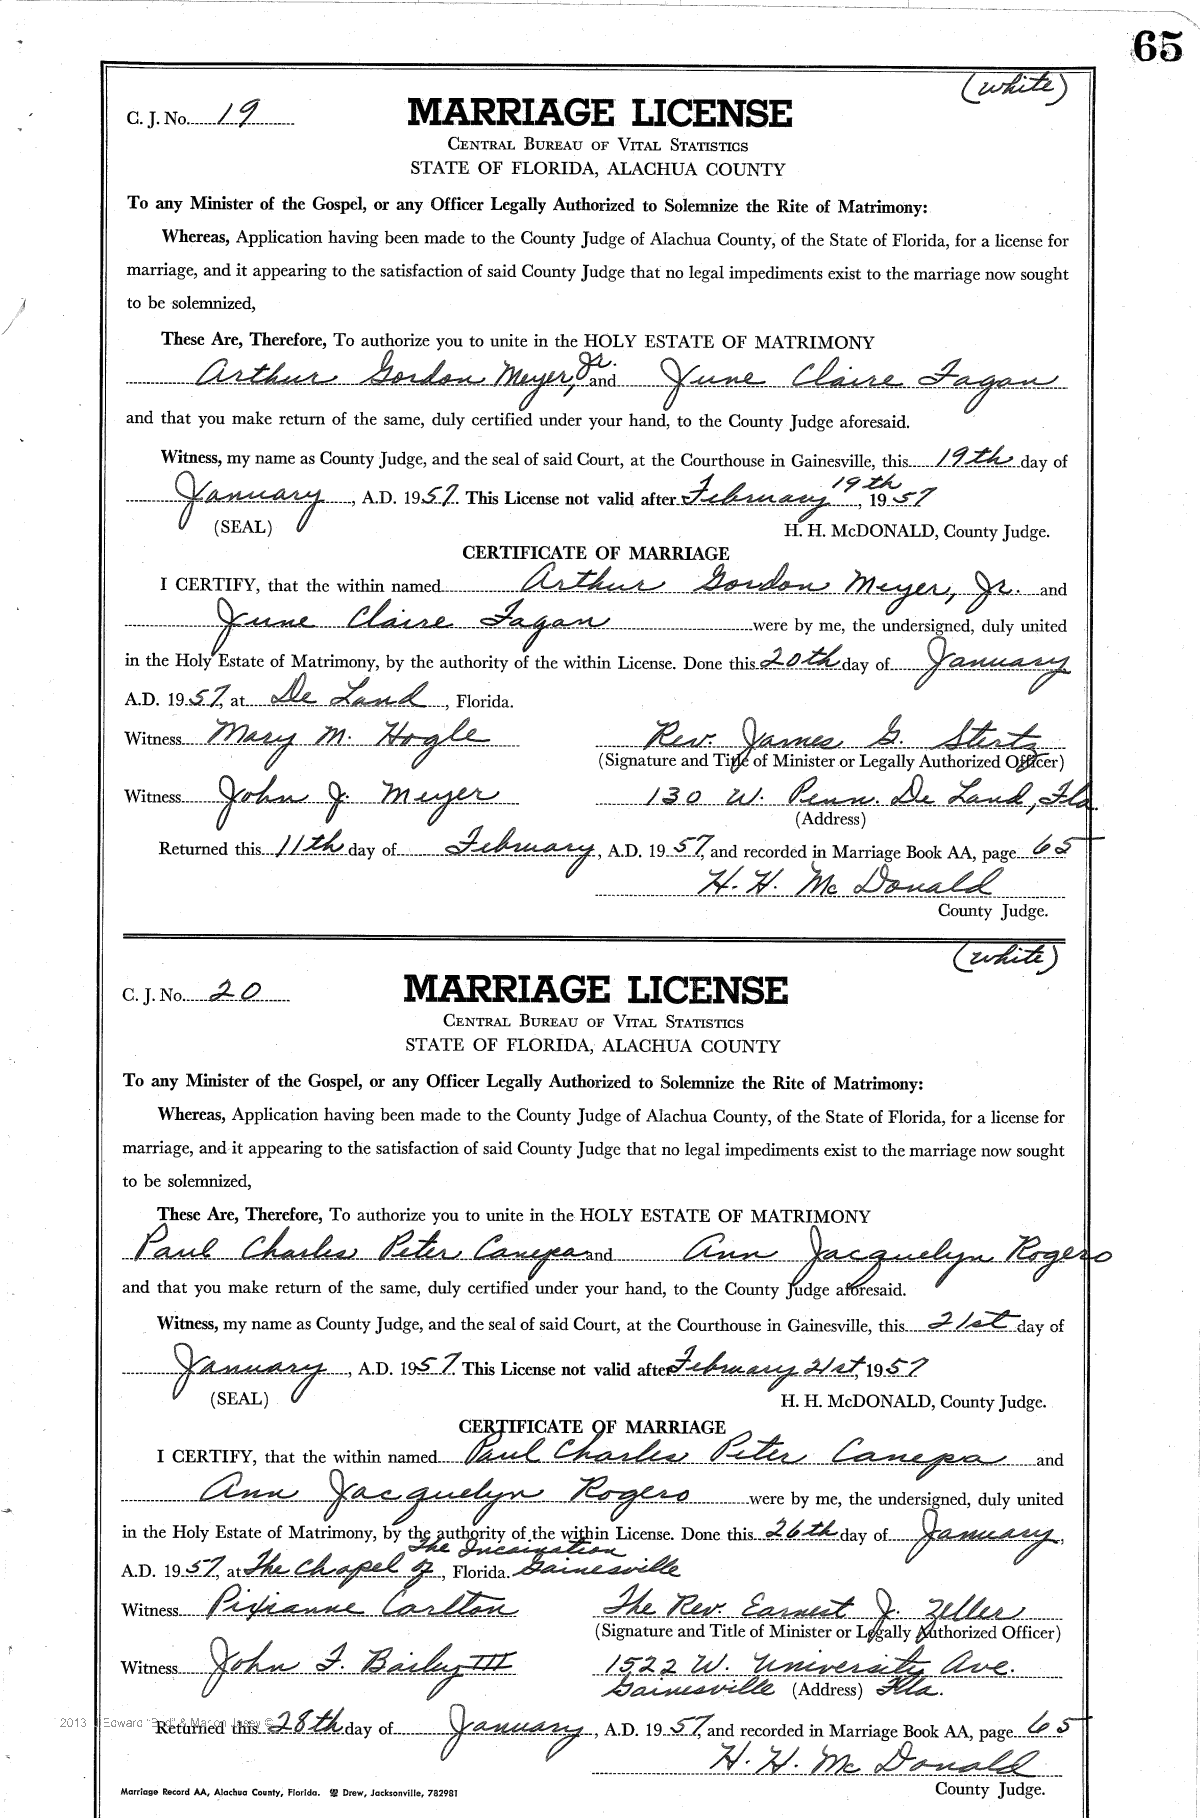 65
(white)
C. J. No. 19
MARRIAGE LICENSE
CENTRAL BUREAU OF VITAL STATISTICS
STATE OF FLORIDA, ALACHUA COUNTY
To any Minister of the Gospel, or any Officer Legally Authorized to Solemnize the Rite of Matrimony:
Whereas, Application having been made to the County Judge of Alachua County, of the State of Florida, for a license for
marriage, and it appearing to the satisfaction of said County Judge that no legal impediments exist to the marriage now sought
to be solemnized,
These Are, Therefore, To authorize you to unite in the HOLY ESTATE OF MATRIMONY
Arthur Gordon Meyer, Jr. and June Claire Fagan
and that you make return of the same, duly certified under your hand, to the County Judge aforesaid.
Witness, my name as County Judge, and the seal of said Court, at the Courthouse in Gainesville, this 19th day of
January, A.D. 1957. This License not valid after February 19th, 1957
(SEAL) H. H. McDONALD, County Judge.
CERTIFICATE OF MARRIAGE
I CERTIFY, that the within named Arthur Gordon Meyer, Jr. and
June Claire Fagan were by me, the undersigned, duly united
in the Holy Estate of Matrimony, by the authority of the within License. Done this 20th day of January
A.D. 1957, at De Land, Florida.
Witness Mary M. Hogle Rev. James G. Stertz
(Signature and Title of Minister or Legally Authorized Officer)
Witness John J. Meyer 130 W. Penn. De Land, Fla.
(Address)
Returned this 11th day of February, A.D. 1957, and recorded in Marriage Book AA, page 65
H. H. McDonald
County Judge.
(white)
C. J. No. 20
MARRIAGE LICENSE
CENTRAL BUREAU OF VITAL STATISTICS
STATE OF FLORIDA, ALACHUA COUNTY
To any Minister of the Gospel, or any Officer Legally Authorized to Solemnize the Rite of Matrimony:
Whereas, Application having been made to the County Judge of Alachua County, of the State of Florida, for a license for
marriage, and it appearing to the satisfaction of said County Judge that no legal impediments exist to the marriage now sought
to be solemnized,
These Are, Therefore, To authorize you to unite in the HOLY ESTATE OF MATRIMONY
Paul Charles Peter Canepa and Ann Jacquelyn Rogero
and that you make return of the same, duly certified under your hand, to the County Judge aforesaid.
Witness, my name as County Judge, and the seal of said Court, at the Courthouse in Gainesville, this 21st day of
January, A.D. 1957. This License not valid after February 21st, 1957
(SEAL) H. H. McDONALD, County Judge.
CERTIFICATE OF MARRIAGE
I CERTIFY, that the within named Paul Charles Peter Canepa and
Ann Jacquelyn Rogero were by me, the undersigned, duly united
in the Holy Estate of Matrimony, by the authority of the within License. Done this 26th day of January,
The Incarnation
A.D. 1957, at The Chapel of, Florida. Gainesville
Witness Pixianne Carlton The Rev. Earnest J. Zeller
(Signature and Title of Minister or Legally Authorized Officer)
Witness John F. Bailey III 1522 W. University Ave.
Gainesville (Address) Fla.
2013 Edward
Returned this 28th day of January, A.D. 1957, and recorded in Marriage Book AA, page 65
H. H. McDonald
County Judge.
Marriage Record AA, Alachua County, Florida. Drew, Jacksonville, 782981